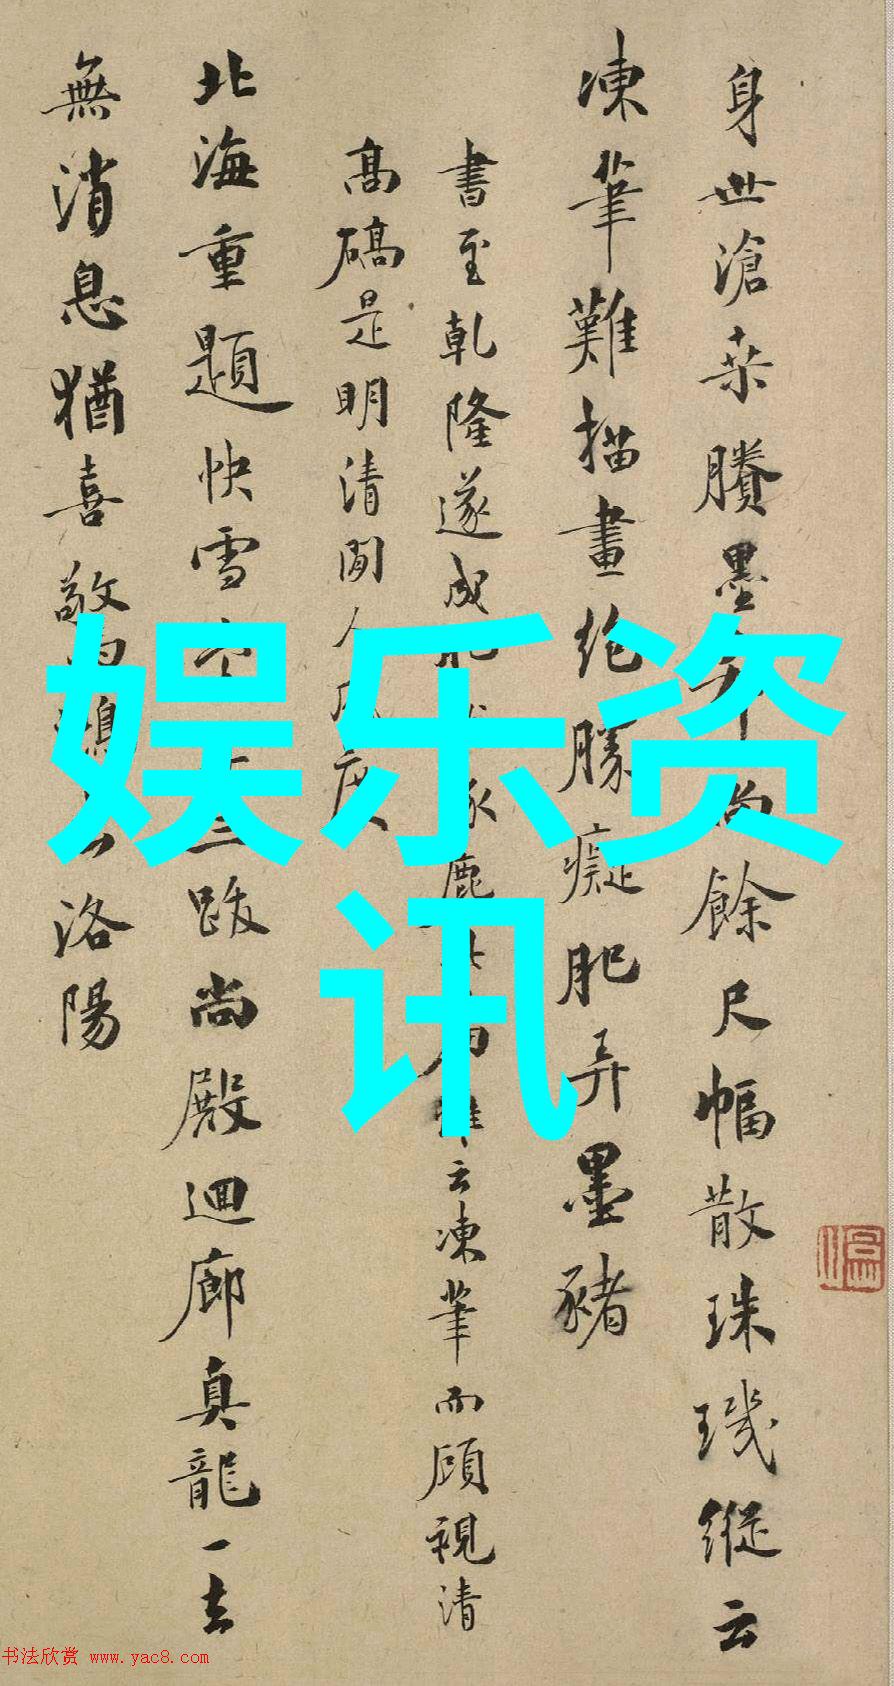 身世滄桑賸墨
餘尺幅散珠璣縱云
凍筆難描畫絶勝癡肥弄墨豬
書至乾隆遂成
鹿
云凍筆而顧視清
高碻是明清間人
北海重題快雪
三跋尚殿迴廊真龍一去
無消息猶喜敬
洛陽
娱乐资
讯
书法欣赏 www.yac8.com